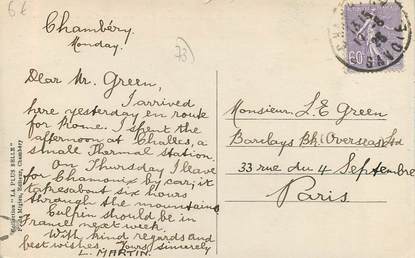 6€
Chambéry.
Monday.
73
Dear Mr. Green,
I arrived
here yesterday en route
for Rome. I spent the
afternoon at Challes, a
small Thermal station.
On Thursday I leave
for Chamonix by car; it
takes about six hours
through the mountains.
Culpin should be in
France next week.
With kind regards and
best wishes. Yours sincerely
L. MARTIN.
Collection "LA PLUS BELLE"
Éditeur, Chambéry
60
SAVOIE
Monsieur L E Green
Barclays Bk. (Overseas) Ltd
33 rue du 4 Septembre
Paris